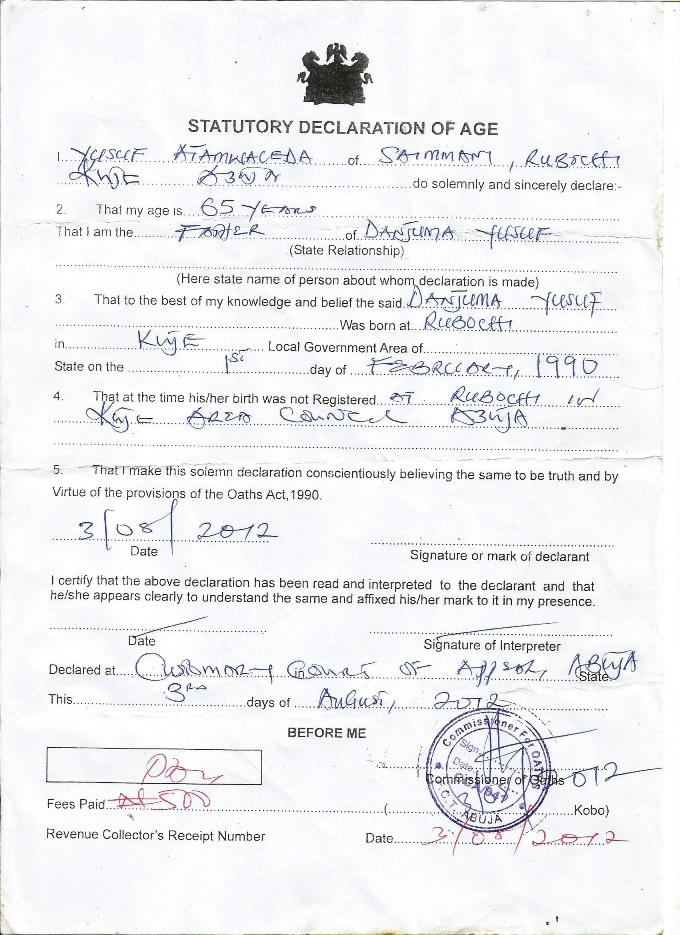 STATUTORY DECLARATION OF AGE
1. YUSUF ATAMWACEDA of SAIMMANI, RUBOCHI
KUJE ABUJA do solemnly and sincerely declare:-
2. That my age is 65 YEARS
That I am the FATHER of DANJUMA YUSUF
(State Relationship)
(Here state name of person about whom declaration is made)
3. That to the best of my knowledge and belief the said DANJUMA YUSUF
Was born at RUBOCHI
in KUJE Local Government Area of
State on the 1st day of FEBRUARY, 1990
4. That at the time his/her birth was not Registered AT RUBOCHI IN
KUJE AREA COUNCIL ABUJA
5. That I make this solemn declaration conscientiously believing the same to be truth and by
Virtue of the provisions of the Oaths Act,1990.
3/08/2012
Date
Signature or mark of declarant
I certify that the above declaration has been read and interpreted to the declarant and that
he/she appears clearly to understand the same and affixed his/her mark to it in my presence.
Date
Signature of Interpreter
Declared at Customary in Court OF Appeal, ABUJA State
This 3RD days of August, 2012
BEFORE ME
Commissioner For OATHS
Sign
Date
F.C.T. ABUJA
Commissioner of Oaths
2012
Fees Paid ₦500 ( Kobo)
Revenue Collector's Receipt Number Date 3/08/2012